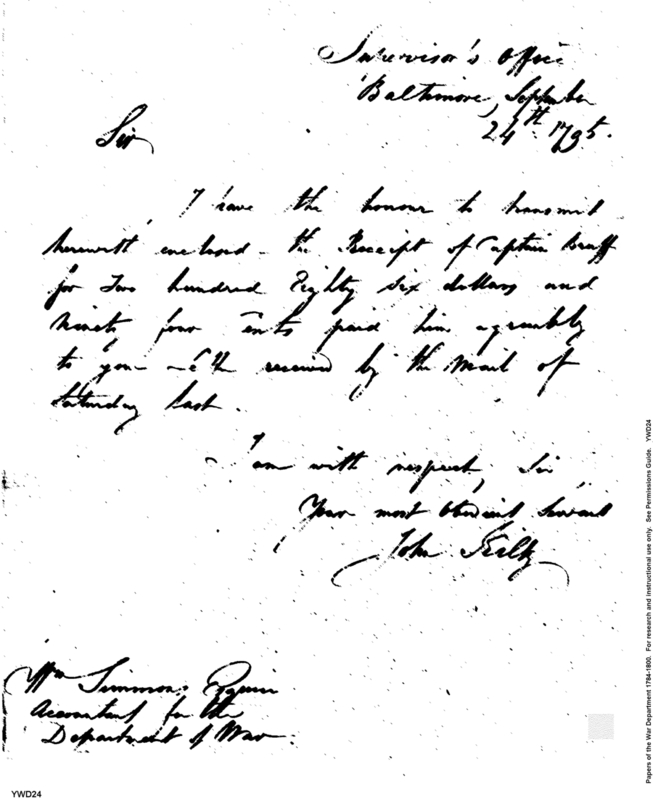 Supervisor's Office
Baltimore, September
24th 1795.
Sir
I have the honour to transmit
herewith enclosed the Receipt of Captain Bruff
for Two hundred Eighty six dollars and
ninety four Cents paid him agreeably
to your received by the Mail of
Saturday last.
I am with respect, Sir
Your most Obedient Servant
John Kilty
Wm Simmons Esquire
Accountant for the
Department of War.
YWD24
Papers of the War Department 1784-1800. For research and instructional use only. See Permissions Guide. YWD24